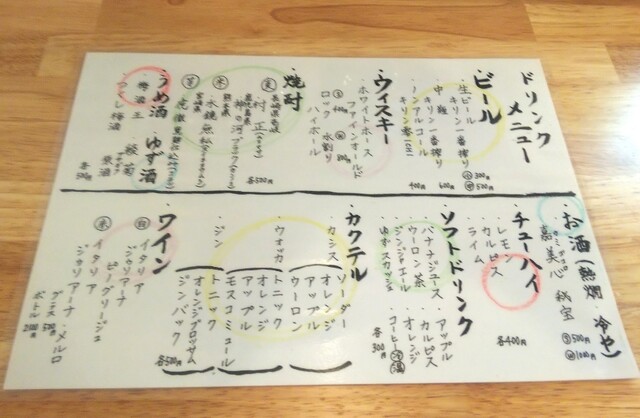 ドリンクメニュー
ビール
生ビール
キリン一番搾り
小 300円
中 500円
中瓶
キリン一番搾り
600円
ノンアルコール
キリン零ICHI
400円
ウィスキー
ホワイトホース
ファインオールド
ロック 水割り
ハイボール
焼酎
麦
長崎県壱岐
村正
鹿児島県
神の河
米
熊本県
水鏡無私
芋
宮崎県
各500円
うめ酒
梅酒王
つくし梅酒
ゆず酒
各500円
お酒(熱燗 冷や)
嘉美心 秘宝
小 500円
大 1000円
チューハイ
レモン
カルピス
ライム
各400円
ソフトドリンク
バナナジュース
ウーロン茶
ジンジャエール
ゆずスカッシュ
アップル
カルピス
オレンジ
コーヒー
各300円
カクテル
カシス
ソーダー
オレンジ
アップル
ウーロン
ウオッカ
トニック
オレンジ
アップル
モスコミュール
ジン
トニック
オレンジブロッサム
ジンバック
各500円
ワイン
白
イタリア
ジャリアーナ
ピーノグリージュ
赤
イタリア
ジャリアーナ・メルロ
グラス
ボトル